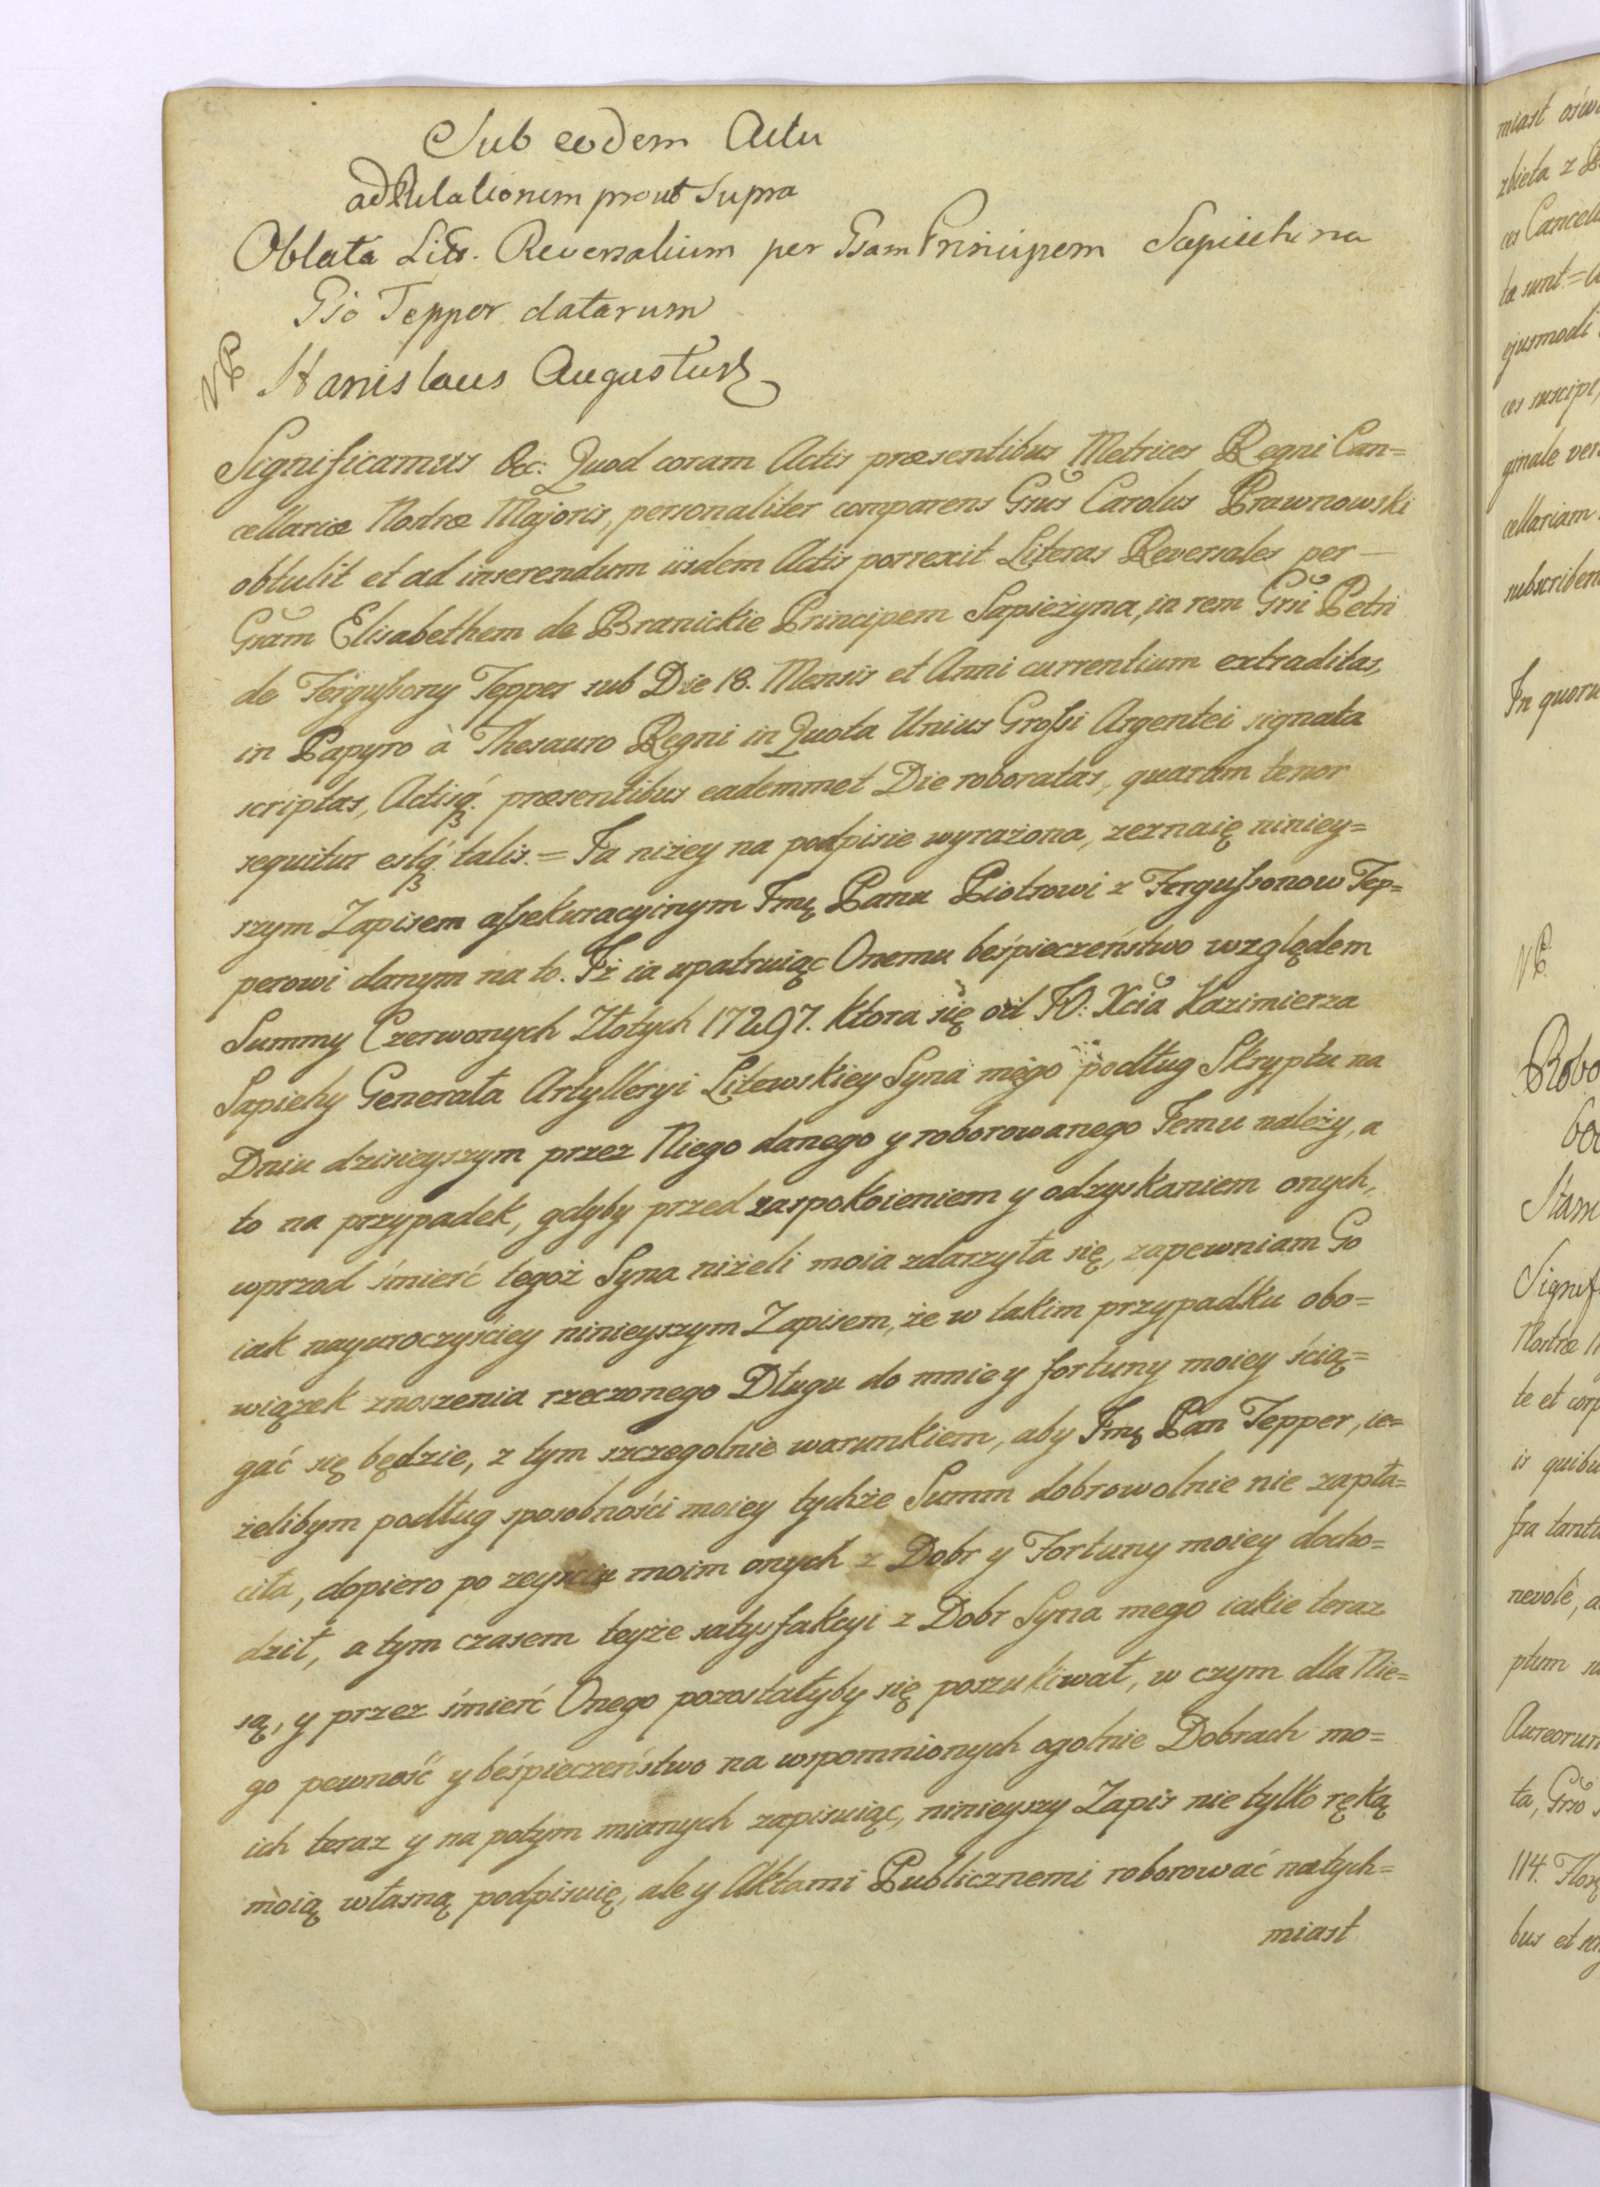 Sub eodem Actu
ad Relationem prout Supra
Oblata Litt. Reversalium per Gsam Principem Sapiehina
Gso Tepper datarum
Stanislaus Augustus
Significamus &c: Quod coram Actis præsentibus Metrices Regni Can=
cellariæ Nostræ Majoris, personaliter comparens Gñus Carolus Brawnowski
obtulit et ad inserendum iisdem Actis porrexit Literas Reversales per
Gñam Elisabethem de Branickie Principem Sapieżyna, in rem Gñi Petri
de Fergusony Tepper sub Die 18. Mensis et Anni currentium extraditas,
in Papyro à Thesauro Regni in Quota Unius Grossi Argentei signata
scriptas, Actisq́. præsentibus eademmet Die roboratas, quarum tenor
sequitur estq́. talis. = Ja niżey na podpisie wyrażona, zeznaię niniey=
szym Zapisem assekuracyinym Jmę Panu Piotrowi z Fergussonow Tep=
perowi danym na to. Iż ia upatruiąc Onemu beśpieczeństwo względem
Summy Czerwonych Złotych 17297. ktora się od JO: Xcia Kazimierza
Sapiehy Generała Artylleryi Litewskiey Syna mego podług Skryptu na
Dniu dzisieyszym przez Niego danego y roborowanego Jemu należy, a
to na przypadek, gdyby przed zaspokoieniem y odzyskaniem onych,
wprzod śmierć tegoż Syna niżeli moia zdarzyła się, zapewniam Go
iak nayuroczyściey ninieyszym Zapisem, że w takim przypadku obo=
wiązek znoszenia rzeczonego Długu do mnie y fortuny moiey ścią=
gać się będzie, z tym szczegolnie warunkiem, aby Jmę Pan Tepper, ie=
żelibym podług sposobności moiey tychże Summ dobrowolnie nie zapła=
ciła, dopiero po zeyściu moim onych z Dobr y Fortuny moiey docho=
dził, a tym czasem teyże satysfakcyi z Dobr Syna mego iakie teraz
są, y przez śmierć Onego pozostałyby się poszukiwał, w czym dla Nie=
go pewność y beśpieczeństwo na wspomnionych ogolnie Dobrach mo=
ich teraz y na potym mianych zapisuiąc, ninieyszy Zapis nie tylko ręką
moią własną podpisuię, ale y Aktami Publicznemi roborować natych=
miast